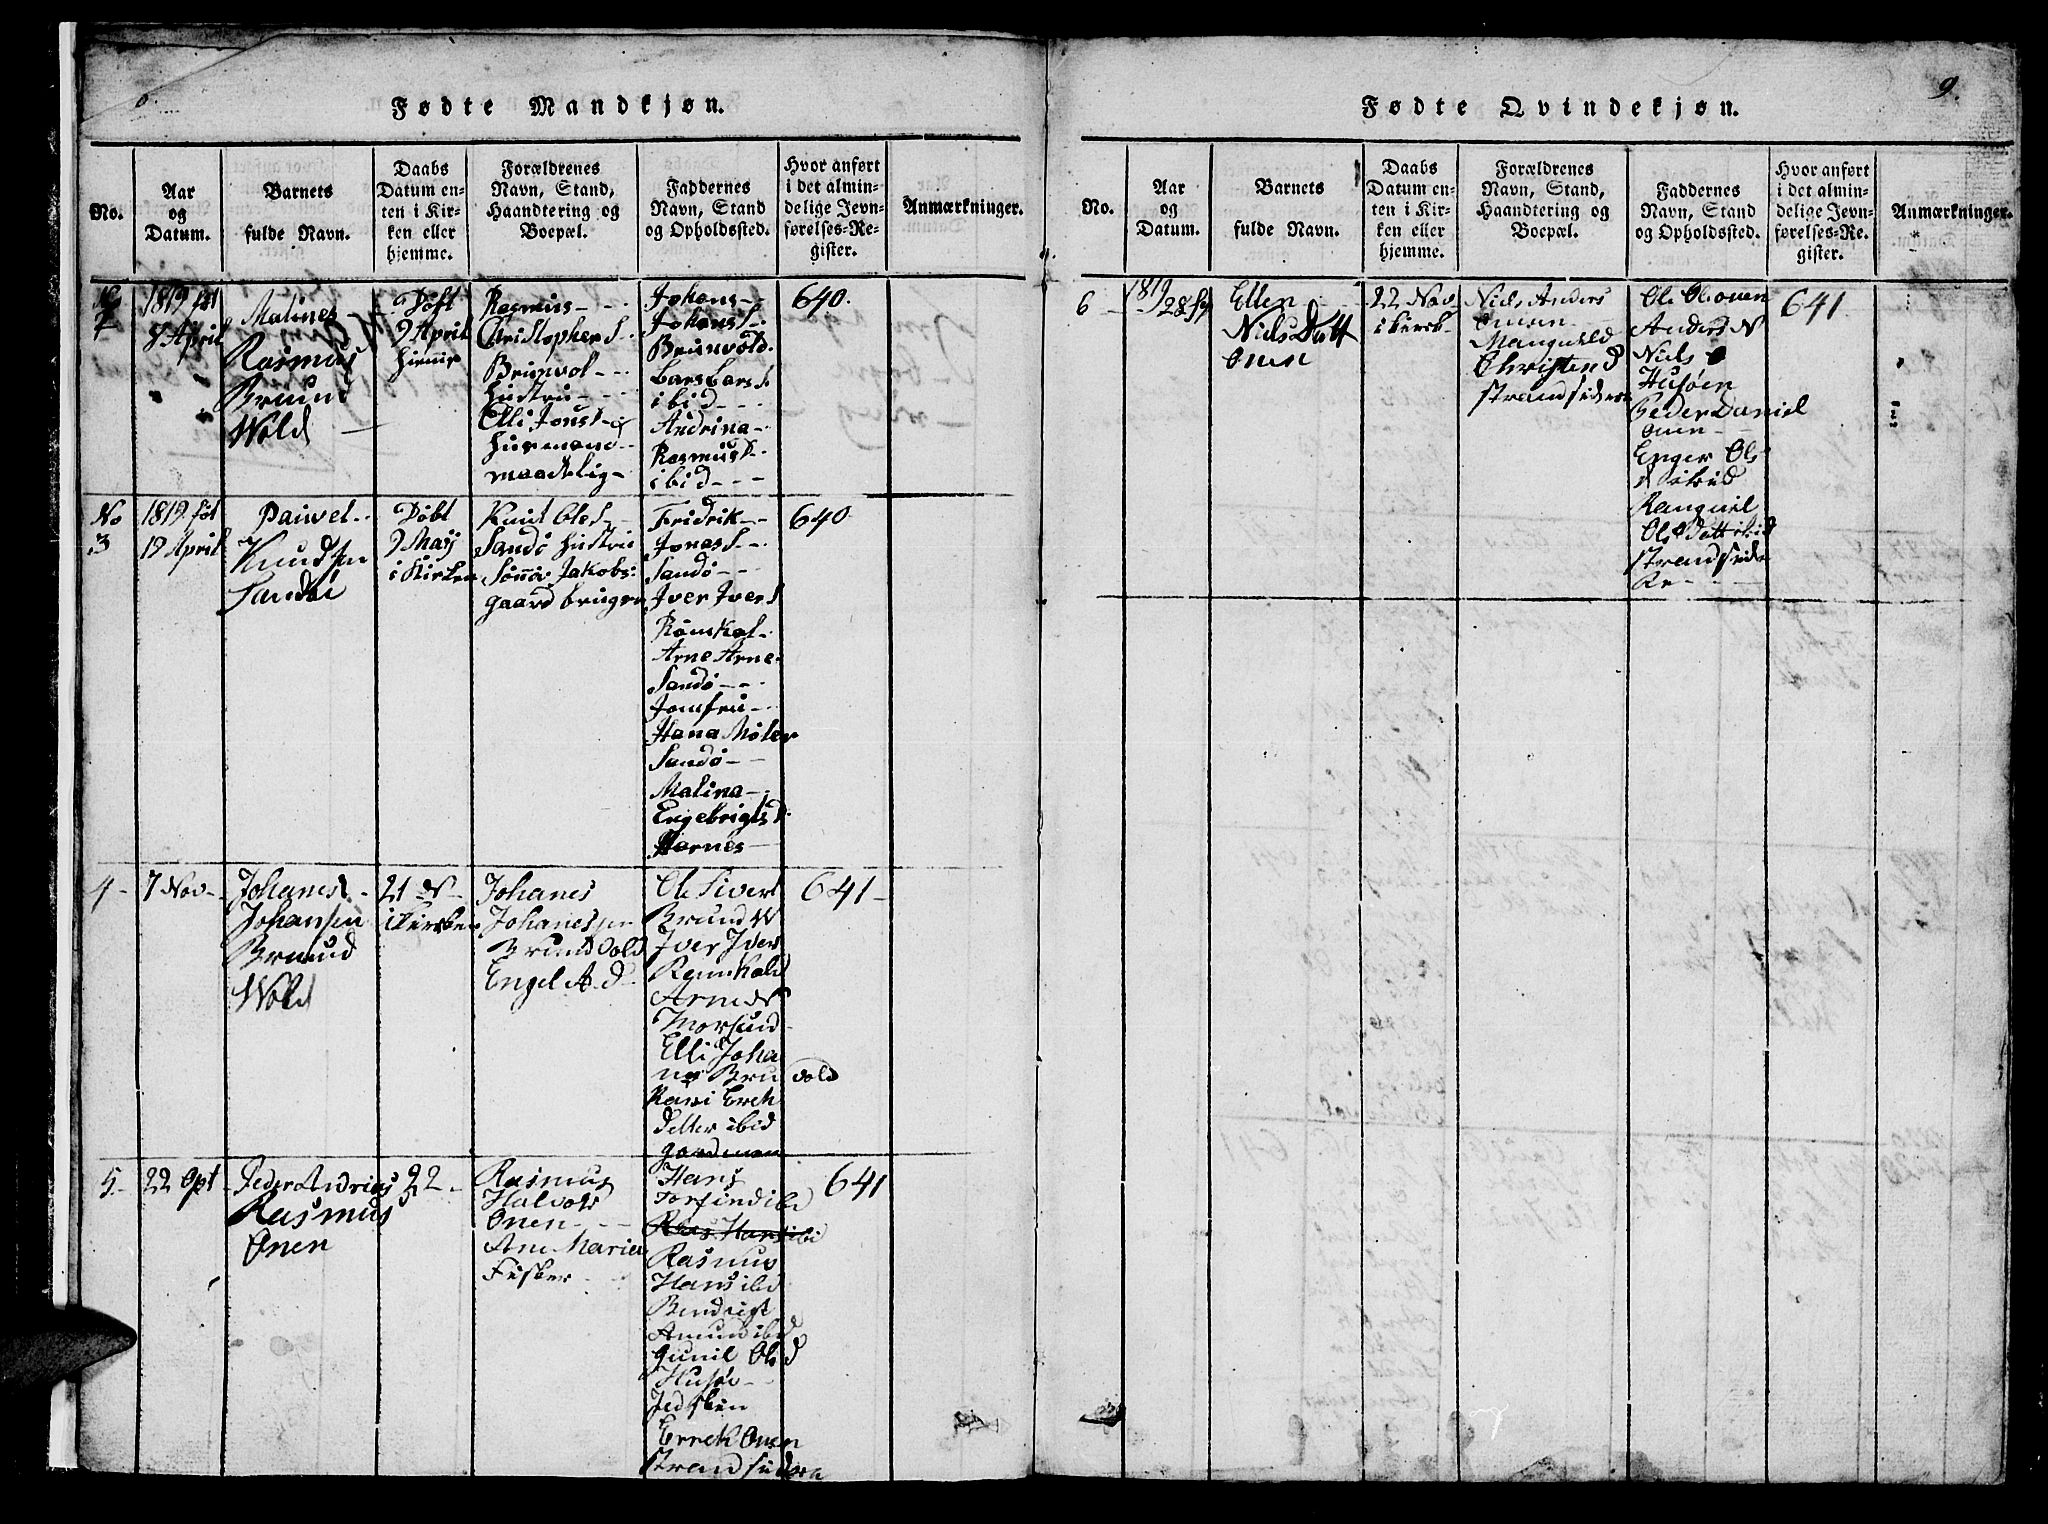 Fødte Mandkjøn.
No.
Aar
og
Datum.
Barnets
fulde Navn.
Daabs
Datum en-
ten i Kir-
ken eller
hjemme.
Forældrenes
Navn, Stand,
Haandtering og
Boepæl.
Faddernes
Navn, Stand
og Opholdssted.
Hvor anført
i det almin-
delige Jevn-
førelses-Re-
gister.
Anmærkninger.
No
2
1819 føt
8 April
Malines
Rasmus
Bruund
Wold
Døbt
9 April
himir
Rasmus
Christopher S
Brunvol
hustru
Elli Jonsd
husmand
maadelig
Johans
Johans S
Brunvold
Lars Lars S
ibid
Andrina
Rasmus D
ibid
640.
No
3
1819 føt
19 April
Pauvel
Knudsen
Sandøi
Døbt
9 Maij
i Kirken
Knut Oles
Sandø hustru
Sønøv Jakobs
gaard bruger
Fridrik
Jonas S
Sandø
Iver Ivers
Rømkol
Arne Arne
Sandø
Jomfru
Hana Møler
Sandø
Malina
Engebrigts d
Harnes
640
4
7 Nov
Johanes
Johansen
Bruund
Wold
21 N
i Kirken
Johanes
Johanessen
Brundvold
Engel A. d
Ole Sivert
Brund W
Iver Iver
Remkold
Arne N
Morsund
Elli Joha
ns Bru vold
Kari Erek
detter ibid
gardmen
641
5
22 Opt
Peder Andrias
Rasmus
Onen
22
Rasmus
Halvors
Onen
Ane Maria
Fisker
Hans
Torfind ibd
Ras. Hans ibi
Rasmus
Hans ibd
Bendrigt
Amund ibd
Gunil Ols d
Husøv
Erreck Onen
strandsidere
641
9.
Fødte Qvindekjøn.
No.
Aar
og
Datum.
Barnets
fulde Navn.
Daabs
Datum en-
ten i Kir-
ken eller
hjemme.
Forældrenes
Navn, Stand,
Haandtering og
Boepæl.
Faddernes
Navn, Stand
og Opholdssted.
Hvor anført
i det almin-
delige Jevn-
førelses-Re-
gister.
Anmærkninger.
6
1819
28 S
Ellen
Niels Datt
Onen
22 Nov
i kirck
Niels Anders
Onen
Mangueld
Christen d
strandsidere
Ole Ol onen
Anders N
Niels
Husøen
Peder Daniel
onen
Enger Ols
d ibid
Ranguel
Ols Datt ibid
strandside
Re
641